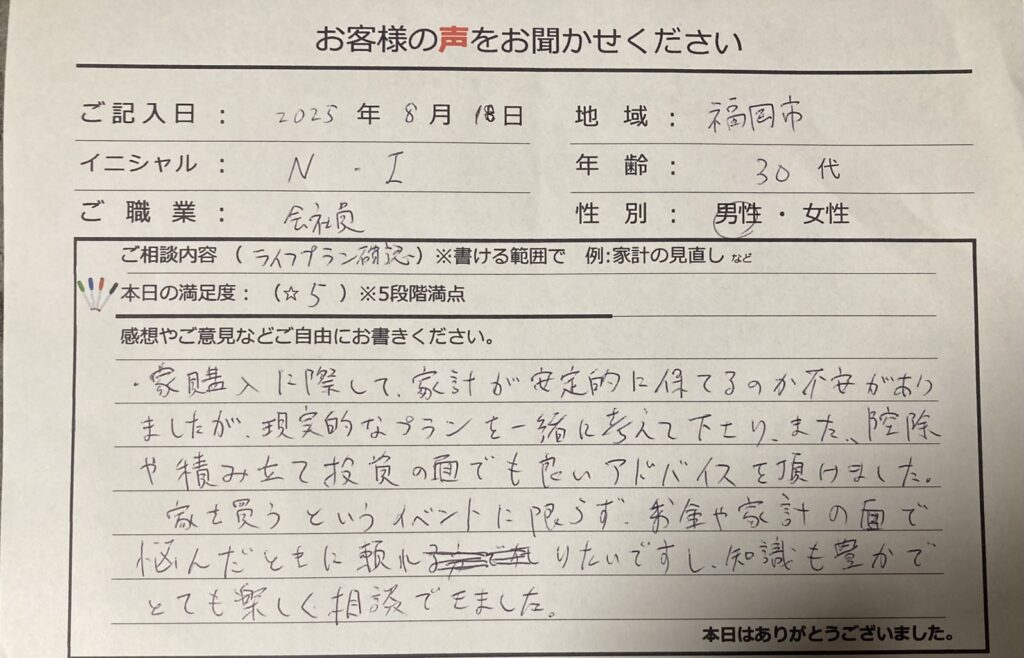 お客様の声をお聞かせください
ご記入日： 2025 年 8 月 18 日
地域： 福岡市
イニシャル： N ・ I
年齢： 30 代
ご職業： 会社員
性別： 男性・女性
ご相談内容（ライフプラン確認）※書ける範囲で 例:家計の見直し など
本日の満足度：（☆ 5 ）※5段階満点
感想やご意見などご自由にお書きください。
・家購入に際して、家計が安定的に保てるのか不安があり
ましたが、現実的なプランを一緒に考えて下さり、また、控除
や積み立て投資の面でも良いアドバイスを頂けました。
家を買うというイベントに限らず、お金や家計の面で
悩んだときに頼りたいですし、知識も豊かで
とても楽しく相談できました。
本日はありがとうございました。